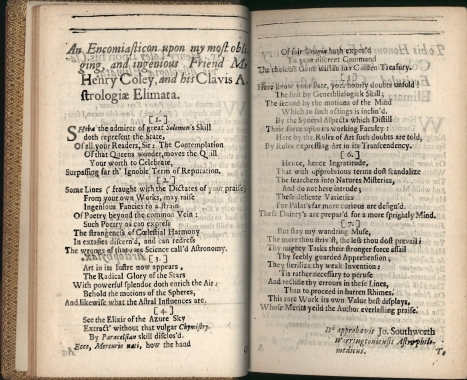 An Encomiasticon upon my most obli
ging, and ingenious Friend Mr
Henry Coley, and his Clavis A-
strologiæ Elimata.
[1.]
Sheba the admirer of great Solomon's Skill
doth represent the State,
Of all your Readers, Sir; The Contemplation
Of that Queens wonder, moves the Quill
Your worth to Celebrate,
Surpassing far th' Ignoble Term of Reputation.
[2.]
Some Lines (fraught with the Dictates of your praise)
From your own Works, may raise
Ingenious Fancies to a strain
Of Poetry beyond the common Vein:
Such Poetry as can express
The strangeness of Cœlestial Harmony
In extasies discern'd, and can redress
The wrongs of that one Science call'd Astronomy.
[3.]
Art in its lustre now appears,
The Radical Glory of the Stars
With powerful splendor doth enrich the Air:
Behold the motions of the Spheres,
And likewise what the Astral Influences are.
[4.]
See the Elixir of the Azure Sky
Extract' without that vulgar Chymistry.
By Paracelsian skill disclos'd.
Ecce, Mercurio nati, how the hand
Of fair Urania hath expos'd
To your discreet Command
The choicest Gem within her Golden Treasury.
[5.]
Here know your Fate, you hourly doubts unfold!
The first by Genethliacal Skill;
The second by the motions of the Mind
Which to such actings is inclin'd.
By the Syderal Aspects which Distill
Their force upon its working Faculty:
Here by the Rules of Art such doubts are told,
By Rules expressing Art in its Transcendency.
[6.]
Hence, hence Ingratitude,
That with opprobrious terms dost scandalize
The searchers into Natures Misteries,
And do not here intrude;
These delicate Varieties
For Palats far more curious are design'd.
These Dainty's are prepar'd for a more sprightly Mind.
[7.]
But stay my wandring Muse,
The more thou striv'st, the less thou dost prevail:
Thy mighty Tasks their stronger force assail
Thy feebly guarded Apprehension;
They sterilize thy weak Invention:
'Tis rather necessary to peruse
And rectifie thy errors in these Lines,
Than to proceed in barren Rhimes.
This rare Work its own Value best displays,
Whose Merits yeild the Author everlasting praise.
approbavit Jo. Southworth
Warringtoniensis Astrophilo-
medicus.